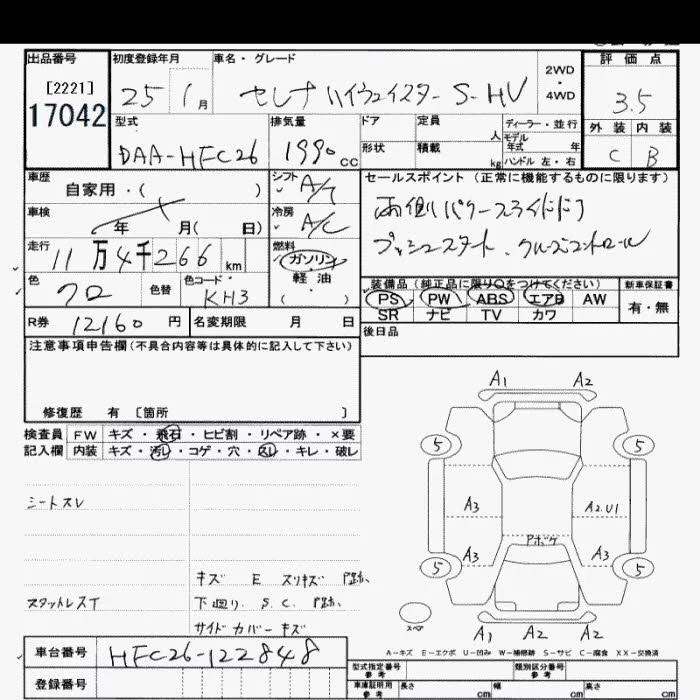 出品番号 初度登録年月 車名・グレード 2WD・4WD 評価点
[2221]
17042
25 1月 セレナ ハイウェイスター S-HV 3.5
型式 排気量 ドア 定員 人 ディーラー・並行
モデル年式 年
形状 積載 kg ハンドル 左・右
DAA-HFC26 1990 cc
外装 内装
C B
車歴 自家用・( )
シフト A/T
セールスポイント (正常に機能するものに限ります)
両側パワースライドドア
プッシュスタート、クルーズコントロール
車検 年 月( 日)
冷房 A/C
走行 11万4千266 km
燃料 ガソリン
軽油
( ・ )
色 クロ 色替 色コード KH3
装備品 (純正品に限り○をつけてください) 新車保証書
PS PW ABS エアB AW 有・無
SR ナビ TV カワ
R券 12160 円 名変期限 月 日
後日品
注意事項申告欄 (不具合内容等は具体的に記入して下さい)
修復歴 有 〔箇所 〕
検査員 FW キズ・飛石・ヒビ割・リペア跡・×要
記入欄 内装 キズ・汚レ・コゲ・穴・スレ・キレ・破レ
シートスレ
キズ E スリキズ
スタットレスT 下廻り S.C.
サイドカバーキズ
A1 A2
5 5
A3 A2.U1
Pボケ
A3 A3
5 5
スペア
A1 A2 A2
A-キズ E-エクボ U-凹み W-補修跡 S-サビ C-腐食 XX-交換済
車台番号 HFC26-122848
登録番号
型式指定番号 参考 類別区分番号 参考
車庫証明用 参考 長さ cm 幅 cm 高さ cm